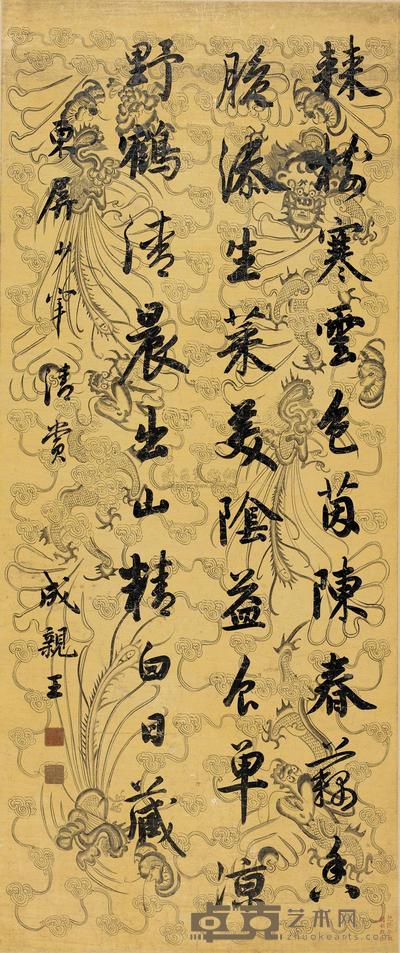 棘樹寒雲色茵陳春藕香
脆添生菜美陰益食單涼
野鶴清晨出山精白日藏
東屏少宰清賞
成親王
卓克艺术网
zhuokearts.com